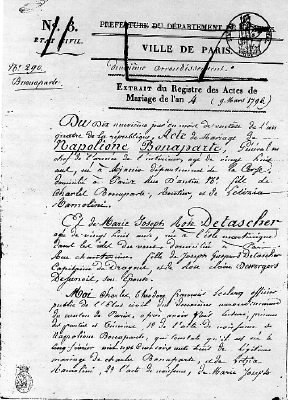 N.º 8.
ETAT CIVIL.
PREFECTURE DU DÉPARTEMENT
VILLE DE PARIS.
Nº. 290.
Bonaparte
Deuxième arrondissement.
EXTRAIT du Registre des Actes de
Mariage de l'an 4 (9 Mars 1796)
Du Dix neuvième jour du mois de ventose de l'an
quatre de la république, Acte de Mariage de
Napolione Bonaparte, Général en
chef de l'armée de l'intérieur, agé de vingt huit
ans, né à Ajaccio département de la Corse
domicilié à Paris rue d'antin fils de
Charles Bonaparte, Rentier, et de Letizia
Ramolini.
Et de Marie Joseph Rose Detascher
agée de vingt huit ans, née à l'isle martinique
dans les isles du vent domiciliée à Paris
rue chantereine fille de Joseph Gaspard Detascher
Capitaine de Dragons et de Rose Claire Desvergers
son épouse.
Moi Charles Théodore françois Leclerq officier
public de l'état civil du Deuxième arrondissement
du canton de Paris, après avoir fait lecture, en
présence des parties et témoins 1º de l'acte de naissance de
Napolione Bonaparte, qui constate qu'il est né le
cinq février mil sept cent soixante huit de légitime
mariage de Charles Bonaparte, et de Letizia
Ramolini, 2º l'acte de naissance, de Marie Joseph